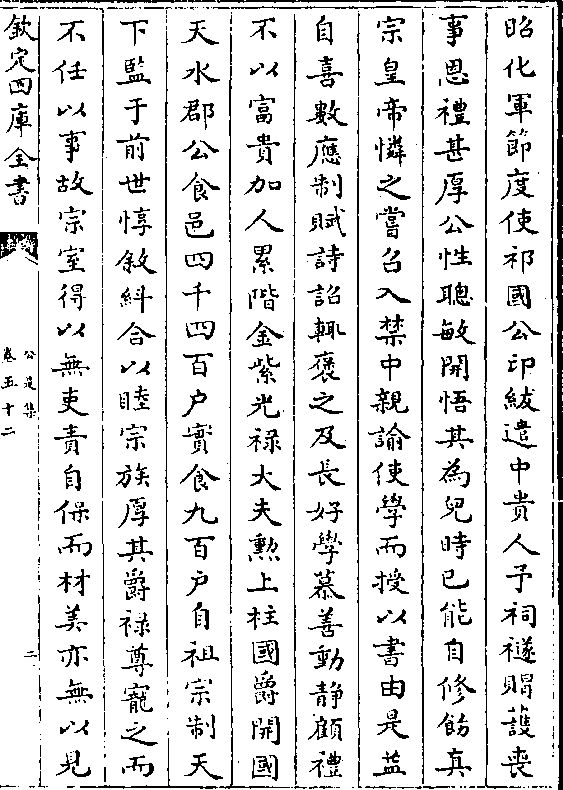 昭化軍節度使祁國公印紱遣中貴人予祠襚賵護喪
事恩禮甚厚公性聰敏開悟其為兒時已能自修飭真
宗皇帝憐之嘗召入禁中親諭使學而授以書由是益
自喜數應制賦詩詔輒褒之及長好學慕善動静顧禮
不以富貴加人累階金紫光禄大夫勲上柱國爵開國
天水郡公食邑四千四百户實食九百户自祖宗制天
下監于前世惇敘糾合以睦宗族厚其爵禄尊寵之而
不任以事故宗室得以無吏責自保而材美亦無以見
欽定四庫全書
公是集
卷五十二
二